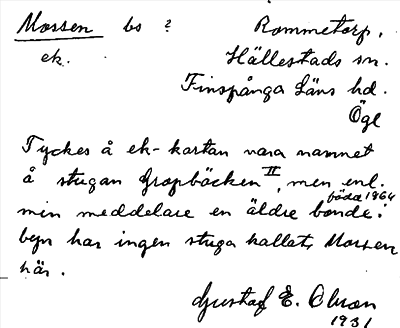 Mossen bs ? Rommetorp,
ek. Hällestads sn.
Finspånga Läns hd.
Ögl
Tyckes å ek-kartan vara namnet
å stugan Gropbäcken II, men enl.
min meddelare en äldre bonde i
född 1864
byn har ingen stuga kallats Mossen
här.
Gustaf E. Olson
1931